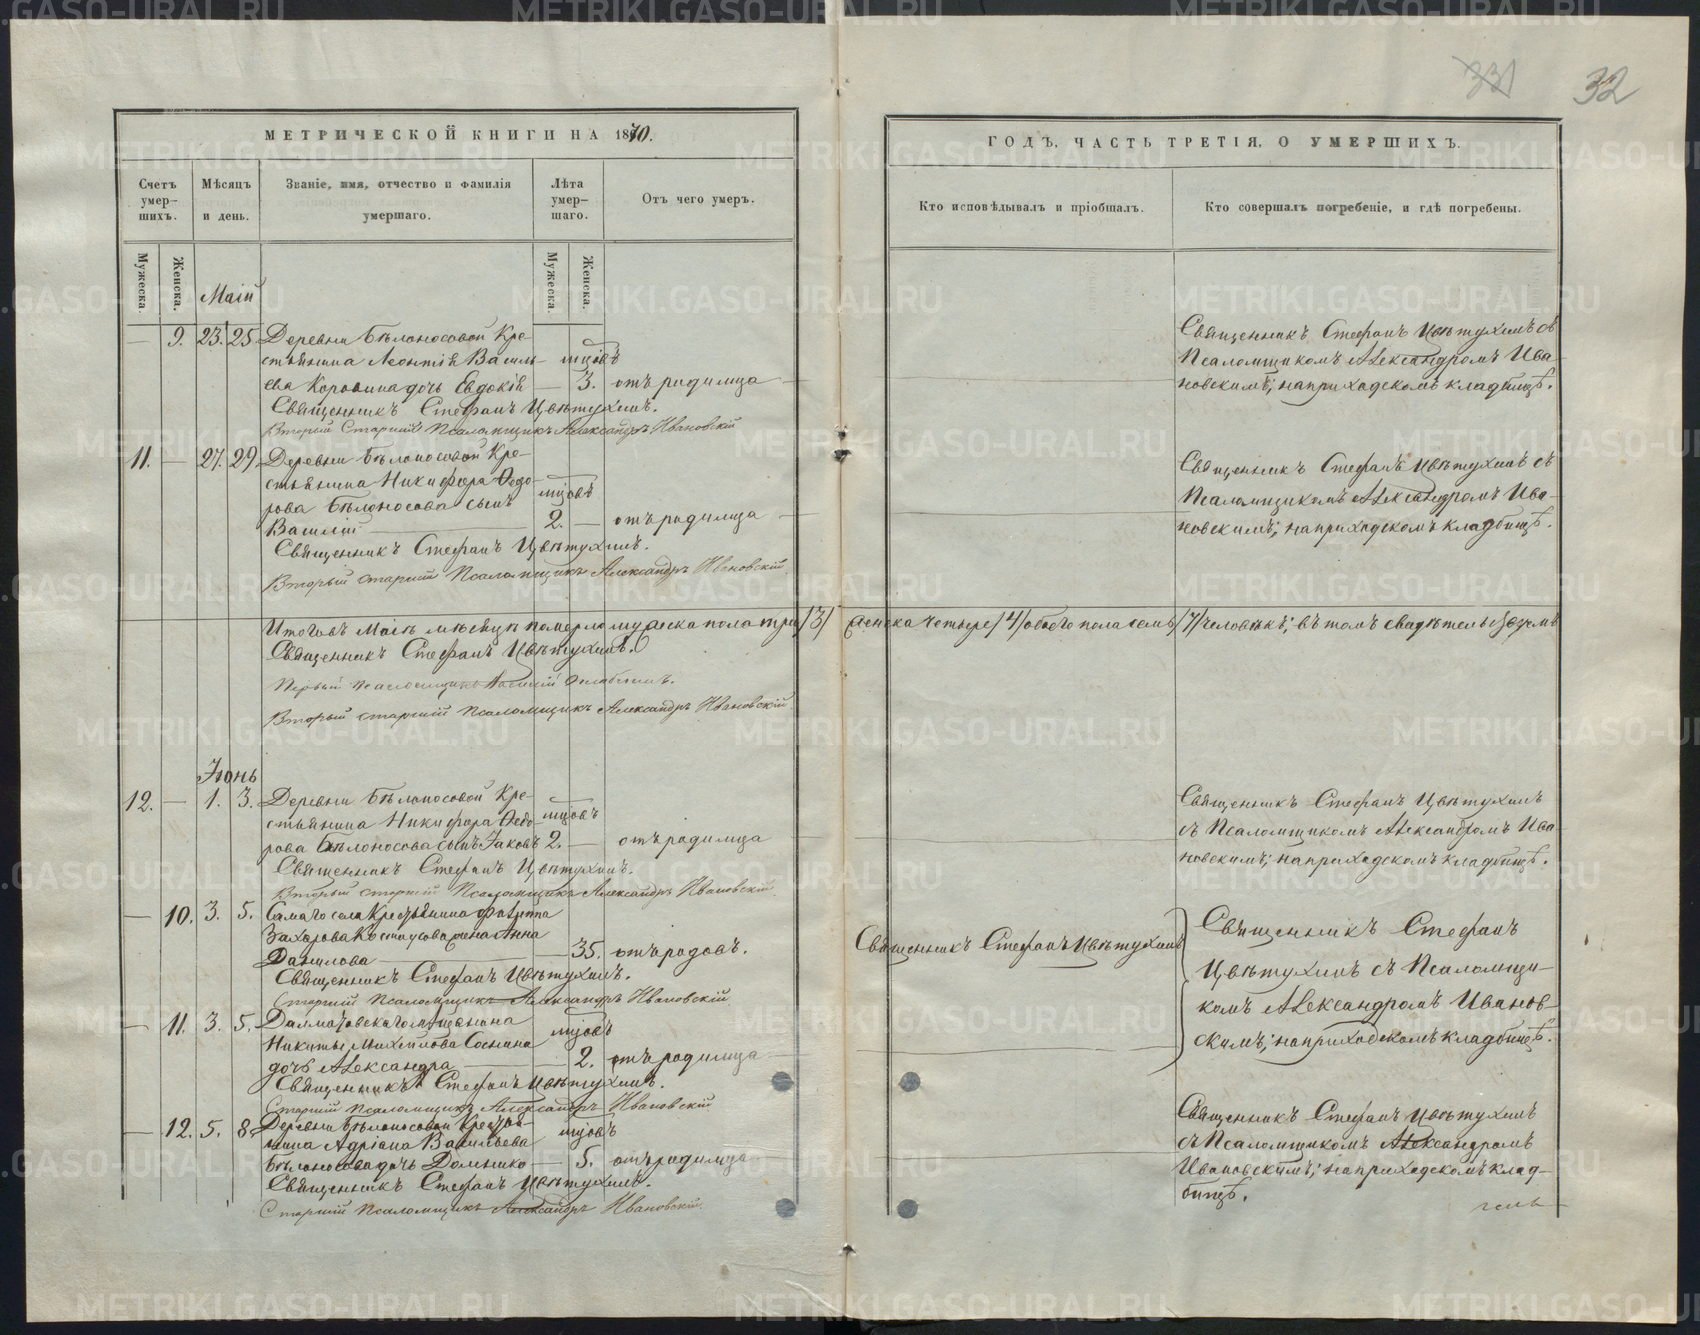 32
МЕТРИЧЕСКОЙ КНИГИ НА 1870.
Счетъ умер- шихъ.
Мѣсяцъ и день.
Званіе, имя, отчество и фамилія умершаго.
Лѣта умер- шаго.
Отъ чего умеръ.
Мужеска.
Женска.
Мужеска.
Женска.
Маій
— 9. 23. 25 Деревни Бѣлоносовой Кре-
стьянина Леонтія Василь- мцовъ
ева Коровина дочь Евдокія — 3. отъ родимца
Священникъ Стефанъ Цвѣтухинъ.
Вторый Старшій Псаломщикъ Александръ Ивановскій
11. — 27. 29 Деревни Бѣлоносовой Кре-
стьянина Никифора Ѳедо- мцовъ
рова Бѣлоносова сынъ
Василій 2. — отъ родимца
Священникъ Стефанъ Цвѣтухинъ.
Вторый старшій Псаломщикъ Александръ Ивановскій
Итого въ Маіѣ мѣсяцѣ померло мужеска пола три /3/
Священникъ Стефанъ Цвѣтухинъ.
Первый псаломщикъ
Вторый старшій Псаломщикъ Александръ Ивановскій
Іюнь
12. — 1. 3. Деревни Бѣлоносовой Кре-
стьянина Никифора Ѳедо- мцовъ
рова Бѣлоносова сынъ Іаковъ 2. — отъ родимца
Священникъ Стефанъ Цвѣтухинъ.
Вторый старшій Псаломщикъ Александръ Ивановскій
— 10. 3. 5. Самаго села Крестьянина Филиппа
Захарова жена Анна
Данилова — 35. отъ родовъ.
Священникъ Стефанъ Цвѣтухинъ.
Старшій Псаломщикъ Александръ Ивановскій
— 11. 3. 5. Далматовскаго мѣщанина
Никиты Михайлова Соснина мцовъ
дочь Александра — 2. отъ родимца
Священникъ Стефанъ Цвѣтухинъ.
Старшій Псаломщикъ Александръ Ивановскій
— 12. 5. 8. Деревни Бѣлоносовой Крестья-
нина Адріана Васильева мцовъ
Бѣлоносова дочь Домника — 5. отъ родимца
Священникъ Стефанъ Цвѣтухинъ.
Старшій Псаломщикъ Александръ Ивановскій.
ГОДЪ, ЧАСТЬ ТРЕТІЯ, О УМЕРШИХЪ.
Кто исповѣдывалъ и пріобщалъ.
Кто совершалъ погребеніе, и гдѣ погребены.
Священникъ Стефанъ Цвѣтухинъ съ
Псаломщикомъ Александромъ Ива-
новскимъ; на приходскомъ кладбищѣ.
Священникъ Стефанъ Цвѣтухинъ съ
Псаломщикомъ Александромъ Ива-
новскимъ; на приходскомъ кладбищѣ.
женска четыре /4/ обоего пола семь /7/ человѣкъ; въ томъ свидѣтельствуемъ
Священникъ Стефанъ Цвѣтухинъ
съ Псаломщикомъ Александромъ Ива-
новскимъ; на приходскомъ кладбищѣ.
Священникъ Стефанъ Цвѣтухинъ
Священникъ Стефанъ
Цвѣтухинъ съ Псаломщи-
комъ Александромъ Иванов-
скимъ; на приходскомъ кладбищѣ.
Священникъ Стефанъ Цвѣтухинъ
съ Псаломщикомъ Александромъ
Ивановскимъ; на приходскомъ клад-
бищѣ.
METRIKI.GASO-URAL.RU